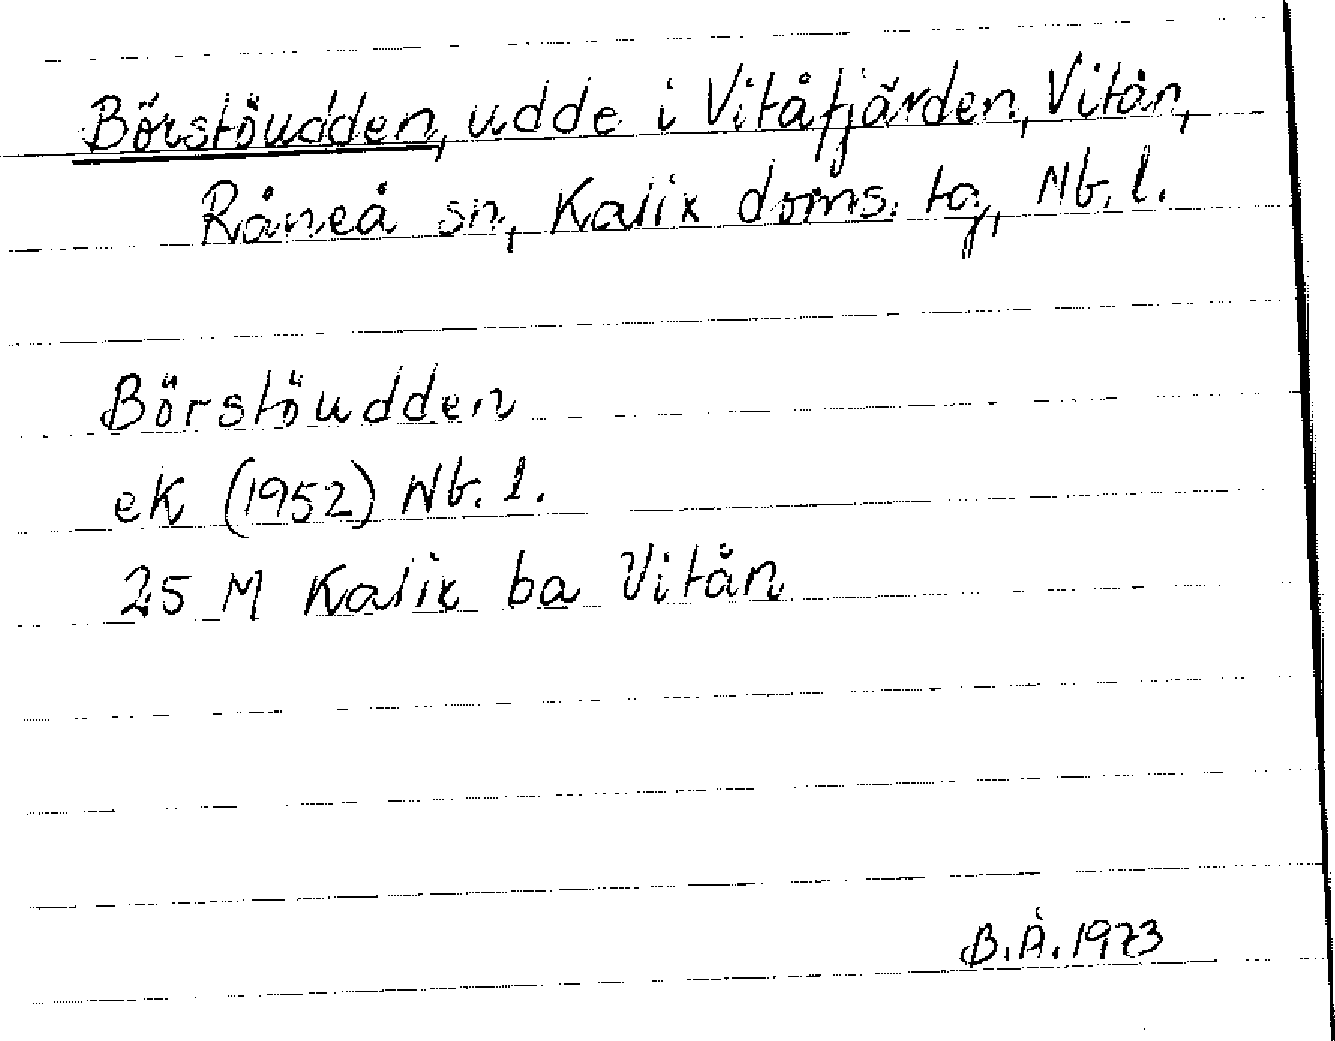 Börstöudden, udde i Vitåfjärden, Vitån,
Råneå sn, Kalix doms. tg, Nb. l.
Börstöudden
eK (1952) Nb. l.
25 M Kalix ba Vitån
B.Å. 1973